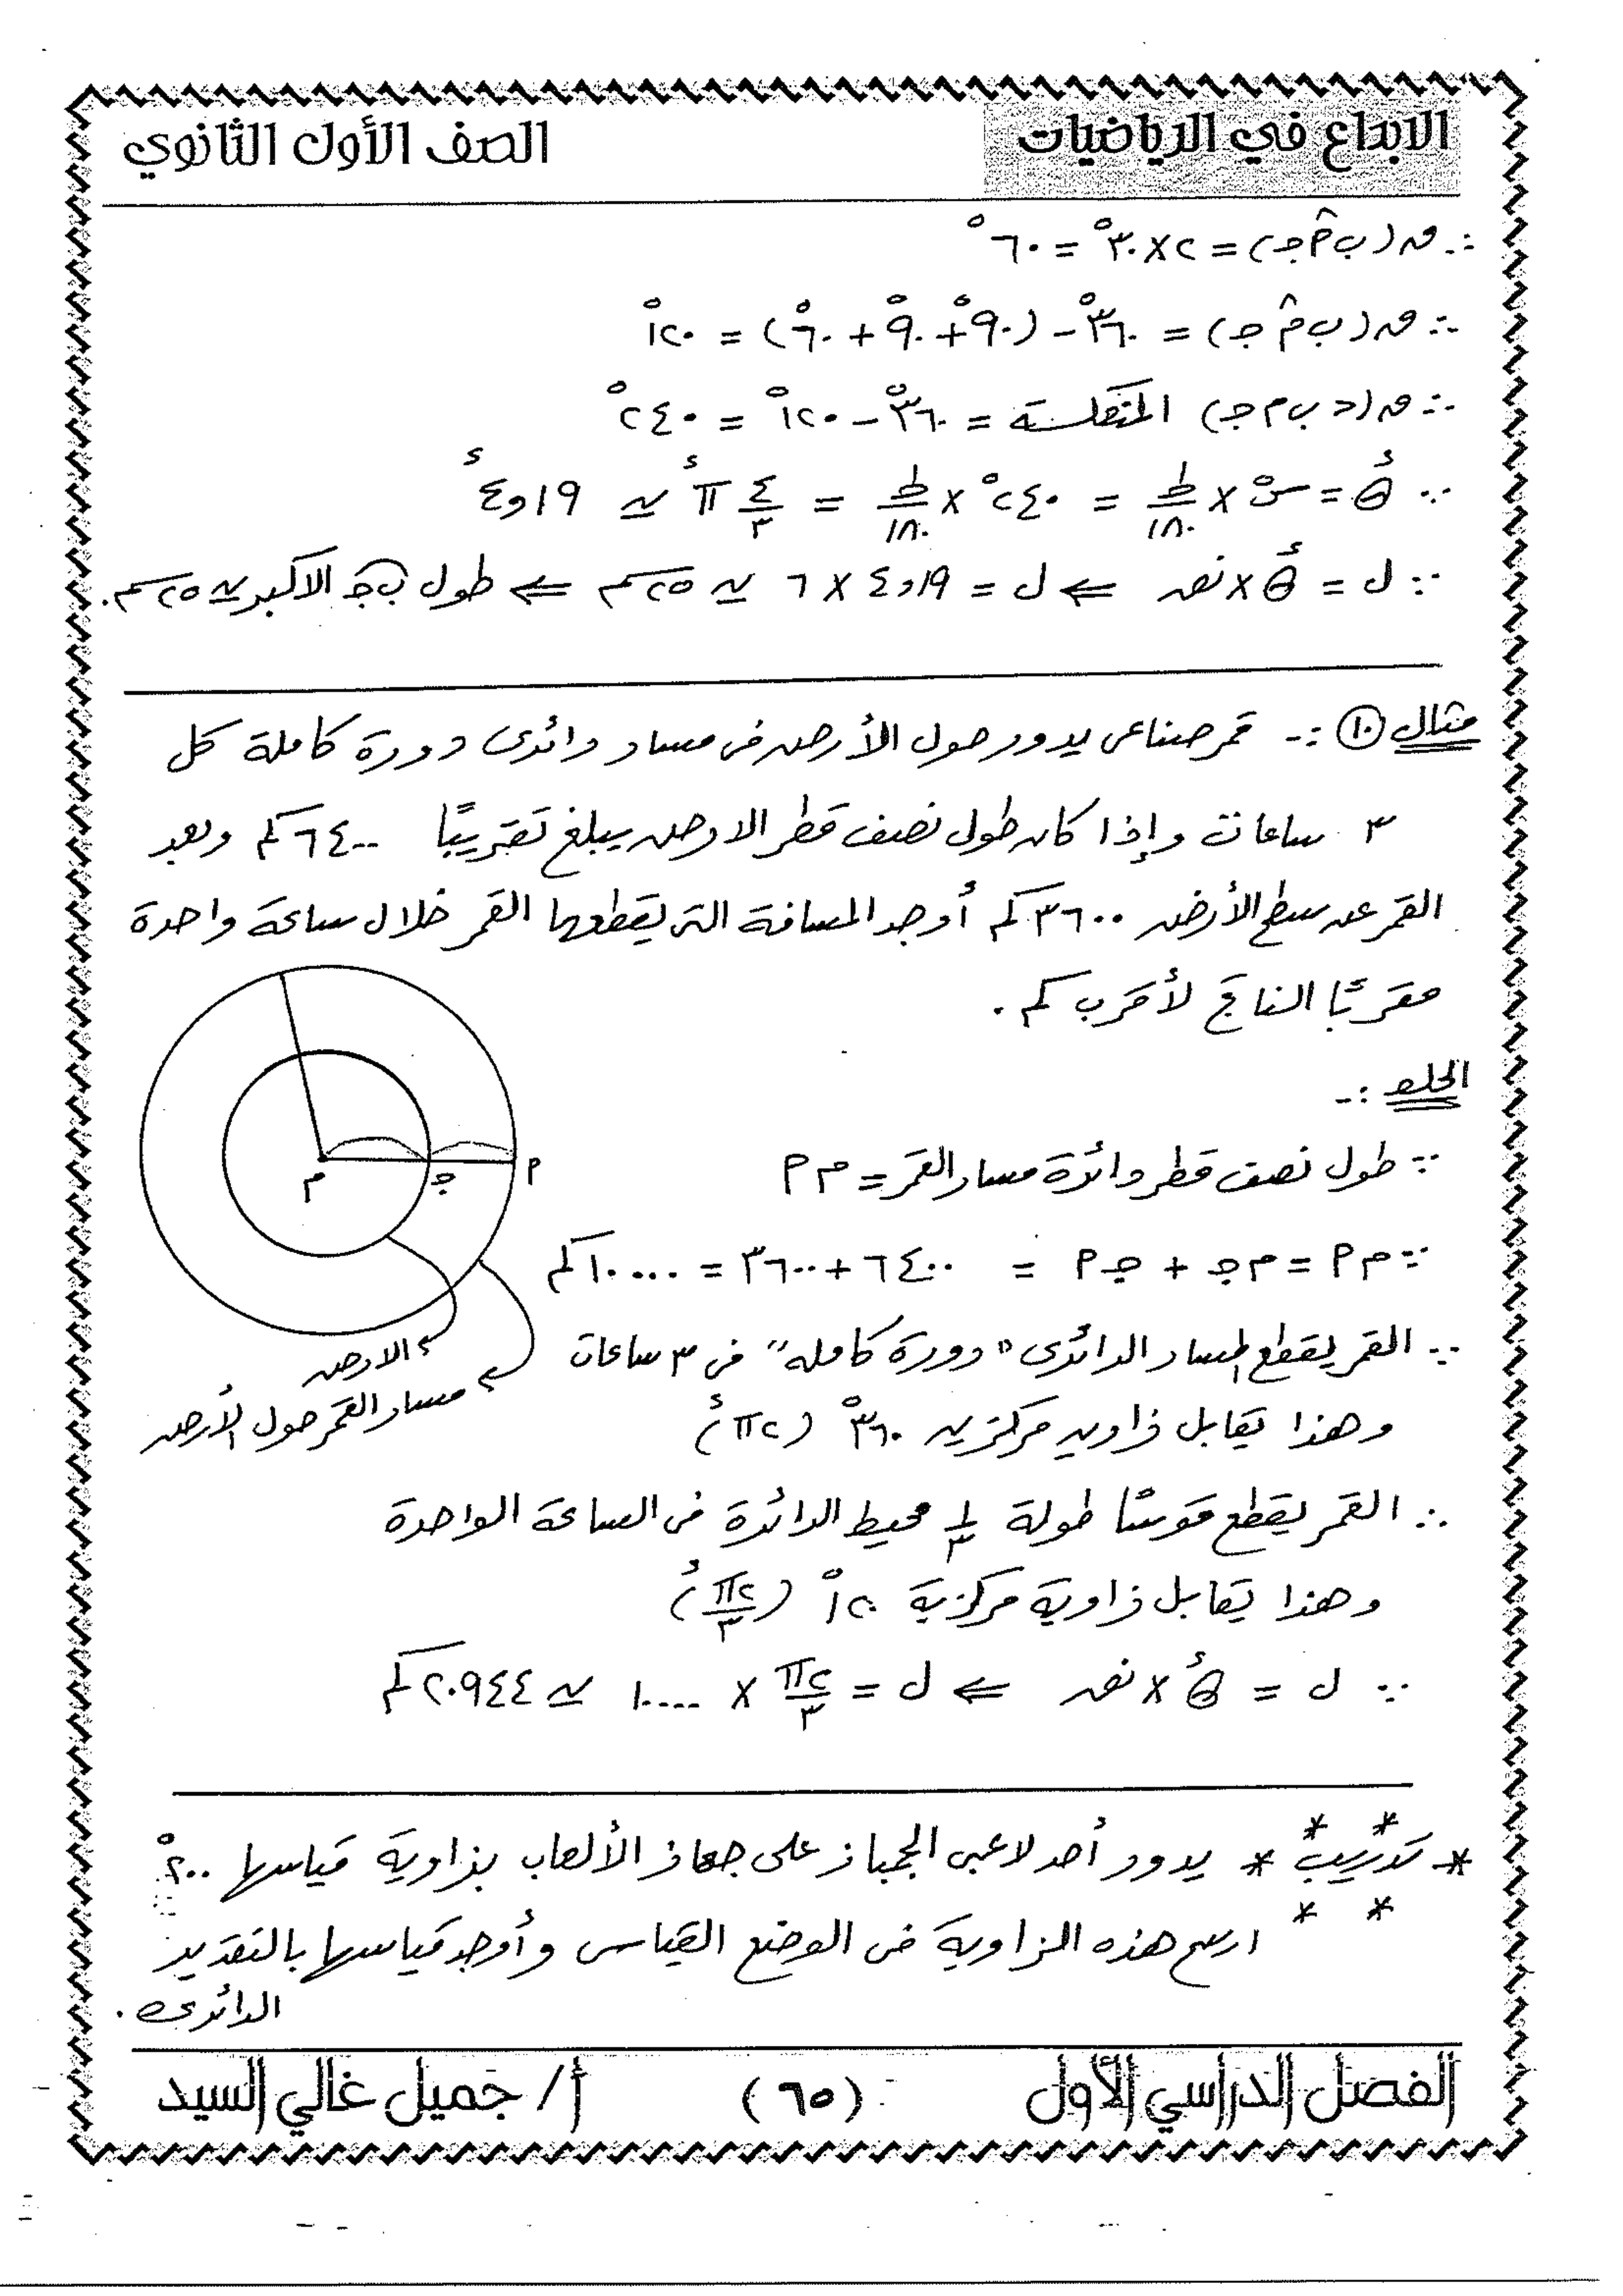 الابداع في الرياضيات
الصف الأول الثانوي
∴ ق(ب أ̂ ج) = ٢ × ٣٠° = ٦٠°
∴ ق(ب م̂ ج) = ٣٦٠° - (٩٠° + ٩٠° + ٦٠°) = ١٢٠°
∴ ق(د ب م ج) المنعكسة = ٣٦٠° - ١٢٠° = ٢٤٠°
∵ θ^ء = س° × ط/١٨٠ = ٢٤٠° × ط/١٨٠ = ٤/٣ π^ء ≃ ٤,١٩^ء
∵ ل = θ^ء × نق ⇐ ل = ٤,١٩ × ٦ ≃ ٢٥سم ⇐ طول ب ج الاكبر ≃ ٢٥سم.
مثال (١٠) :- قمر صناعى يدور حول الأرض فى مسار دائرى دورة كاملة كل
٣ ساعات وإذا كان طول نصف قطر الارض يبلغ تقريبًا ٦٤٠٠ كم وبعد
القمر عن سطح الأرض ٣٦٠٠ كم أوجد المسافة التى يقطعها القمر خلال ساعة واحدة
مقربًا الناتج لأقرب كم .
الحل :-
∵ طول نصف قطر دائرة مسار القمر = م أ
م ج أ
∵ م أ = م ج + ج أ = ٦٤٠٠ + ٣٦٠٠ = ١٠٠٠٠ كم
∵ القمر يقطع المسار الدائرى "دورة كامله" فى ٣ ساعات
الارض
مسار القمر حول الأرض
وهذا يقابل زاوية مركزية ٣٦٠° (٢π^ء)
∴ القمر يقطع قوسًا طولة ١/٣ محيط الدائرة فى الساعة الواحدة
وهذا يقابل زاوية مركزية ١٢٠° (٢π/٣^ء)
∵ ل = θ^ء × نق ⇐ ل = ٢π/٣ × ١٠٠٠٠ ≃ ٢٠٩٤٤ كم
* تدريب * يدور أحد لاعبى الجمباز على جهاز الألعاب بزاوية قياسها ٢٠٠°
ارسم هذه الزاوية فى الوضع القياسى وأوجد قياسها بالتقدير
الدائرى .
الفصل الدراسي الأول
(٦٥)
أ/ جميل غالي السيد